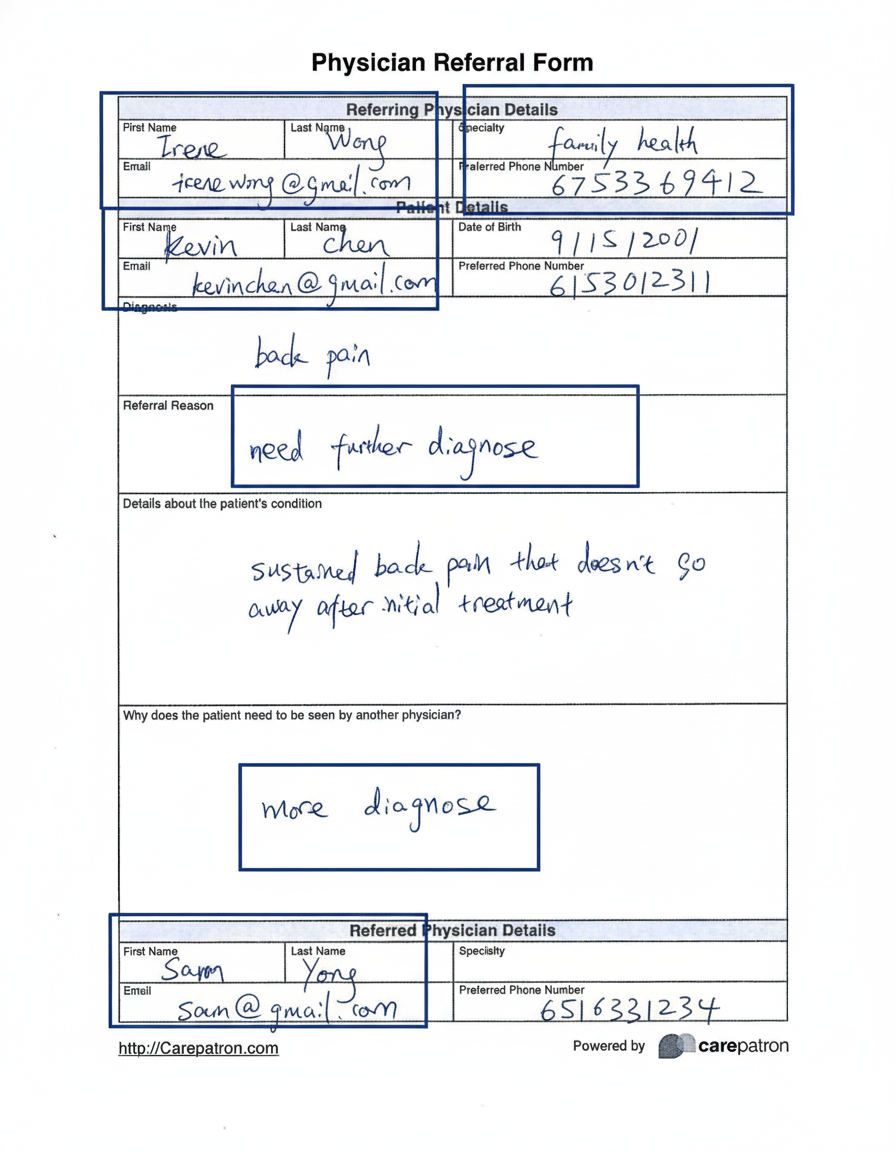 Physician Referral Form
Referring Physician Details
First Name Last Name Specialty
Irene Wong family health
Email Preferred Phone Number
irenewong@gmail.com 6753369412
Patient Details
First Name Last Name Date of Birth
Kevin chen 9/15/2001
Email Preferred Phone Number
kevinchen@gmail.com 6153012311
Diagnosis
back pain
Referral Reason
need further diagnose
Details about the patient's condition
sustained back pain that doesn't go
away after initial treatment
Why does the patient need to be seen by another physician?
more diagnose
Referred Physician Details
First Name Last Name Specialty
Sam Yong
Email Preferred Phone Number
sam@gmail.com 6516331234
http://Carepatron.com Powered by carepatron